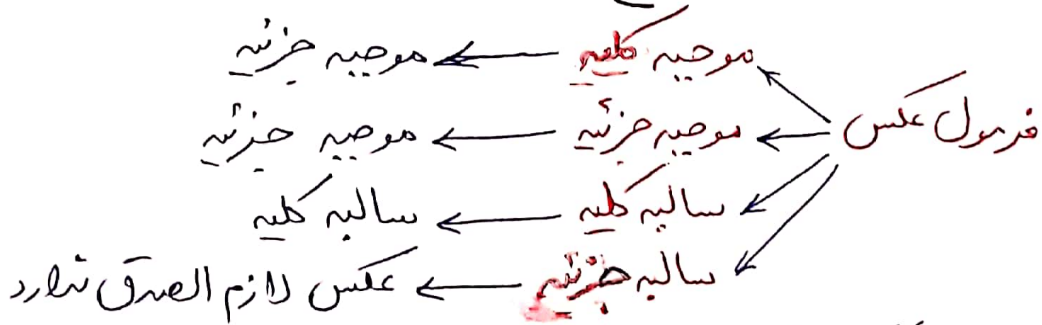 موجبه کلیه ← موجبه جزئیه
فرمول عکس
موجبه جزئیه ← موجبه جزئیه
سالبه کلیه ← سالبه کلیه
سالبه جزئیه ← عکس لازم الصدق ندارد